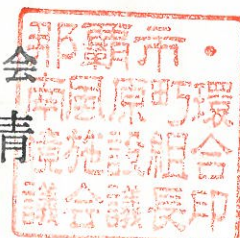 那覇市・
南風原町環
境施設組合
議会議長印
会
青